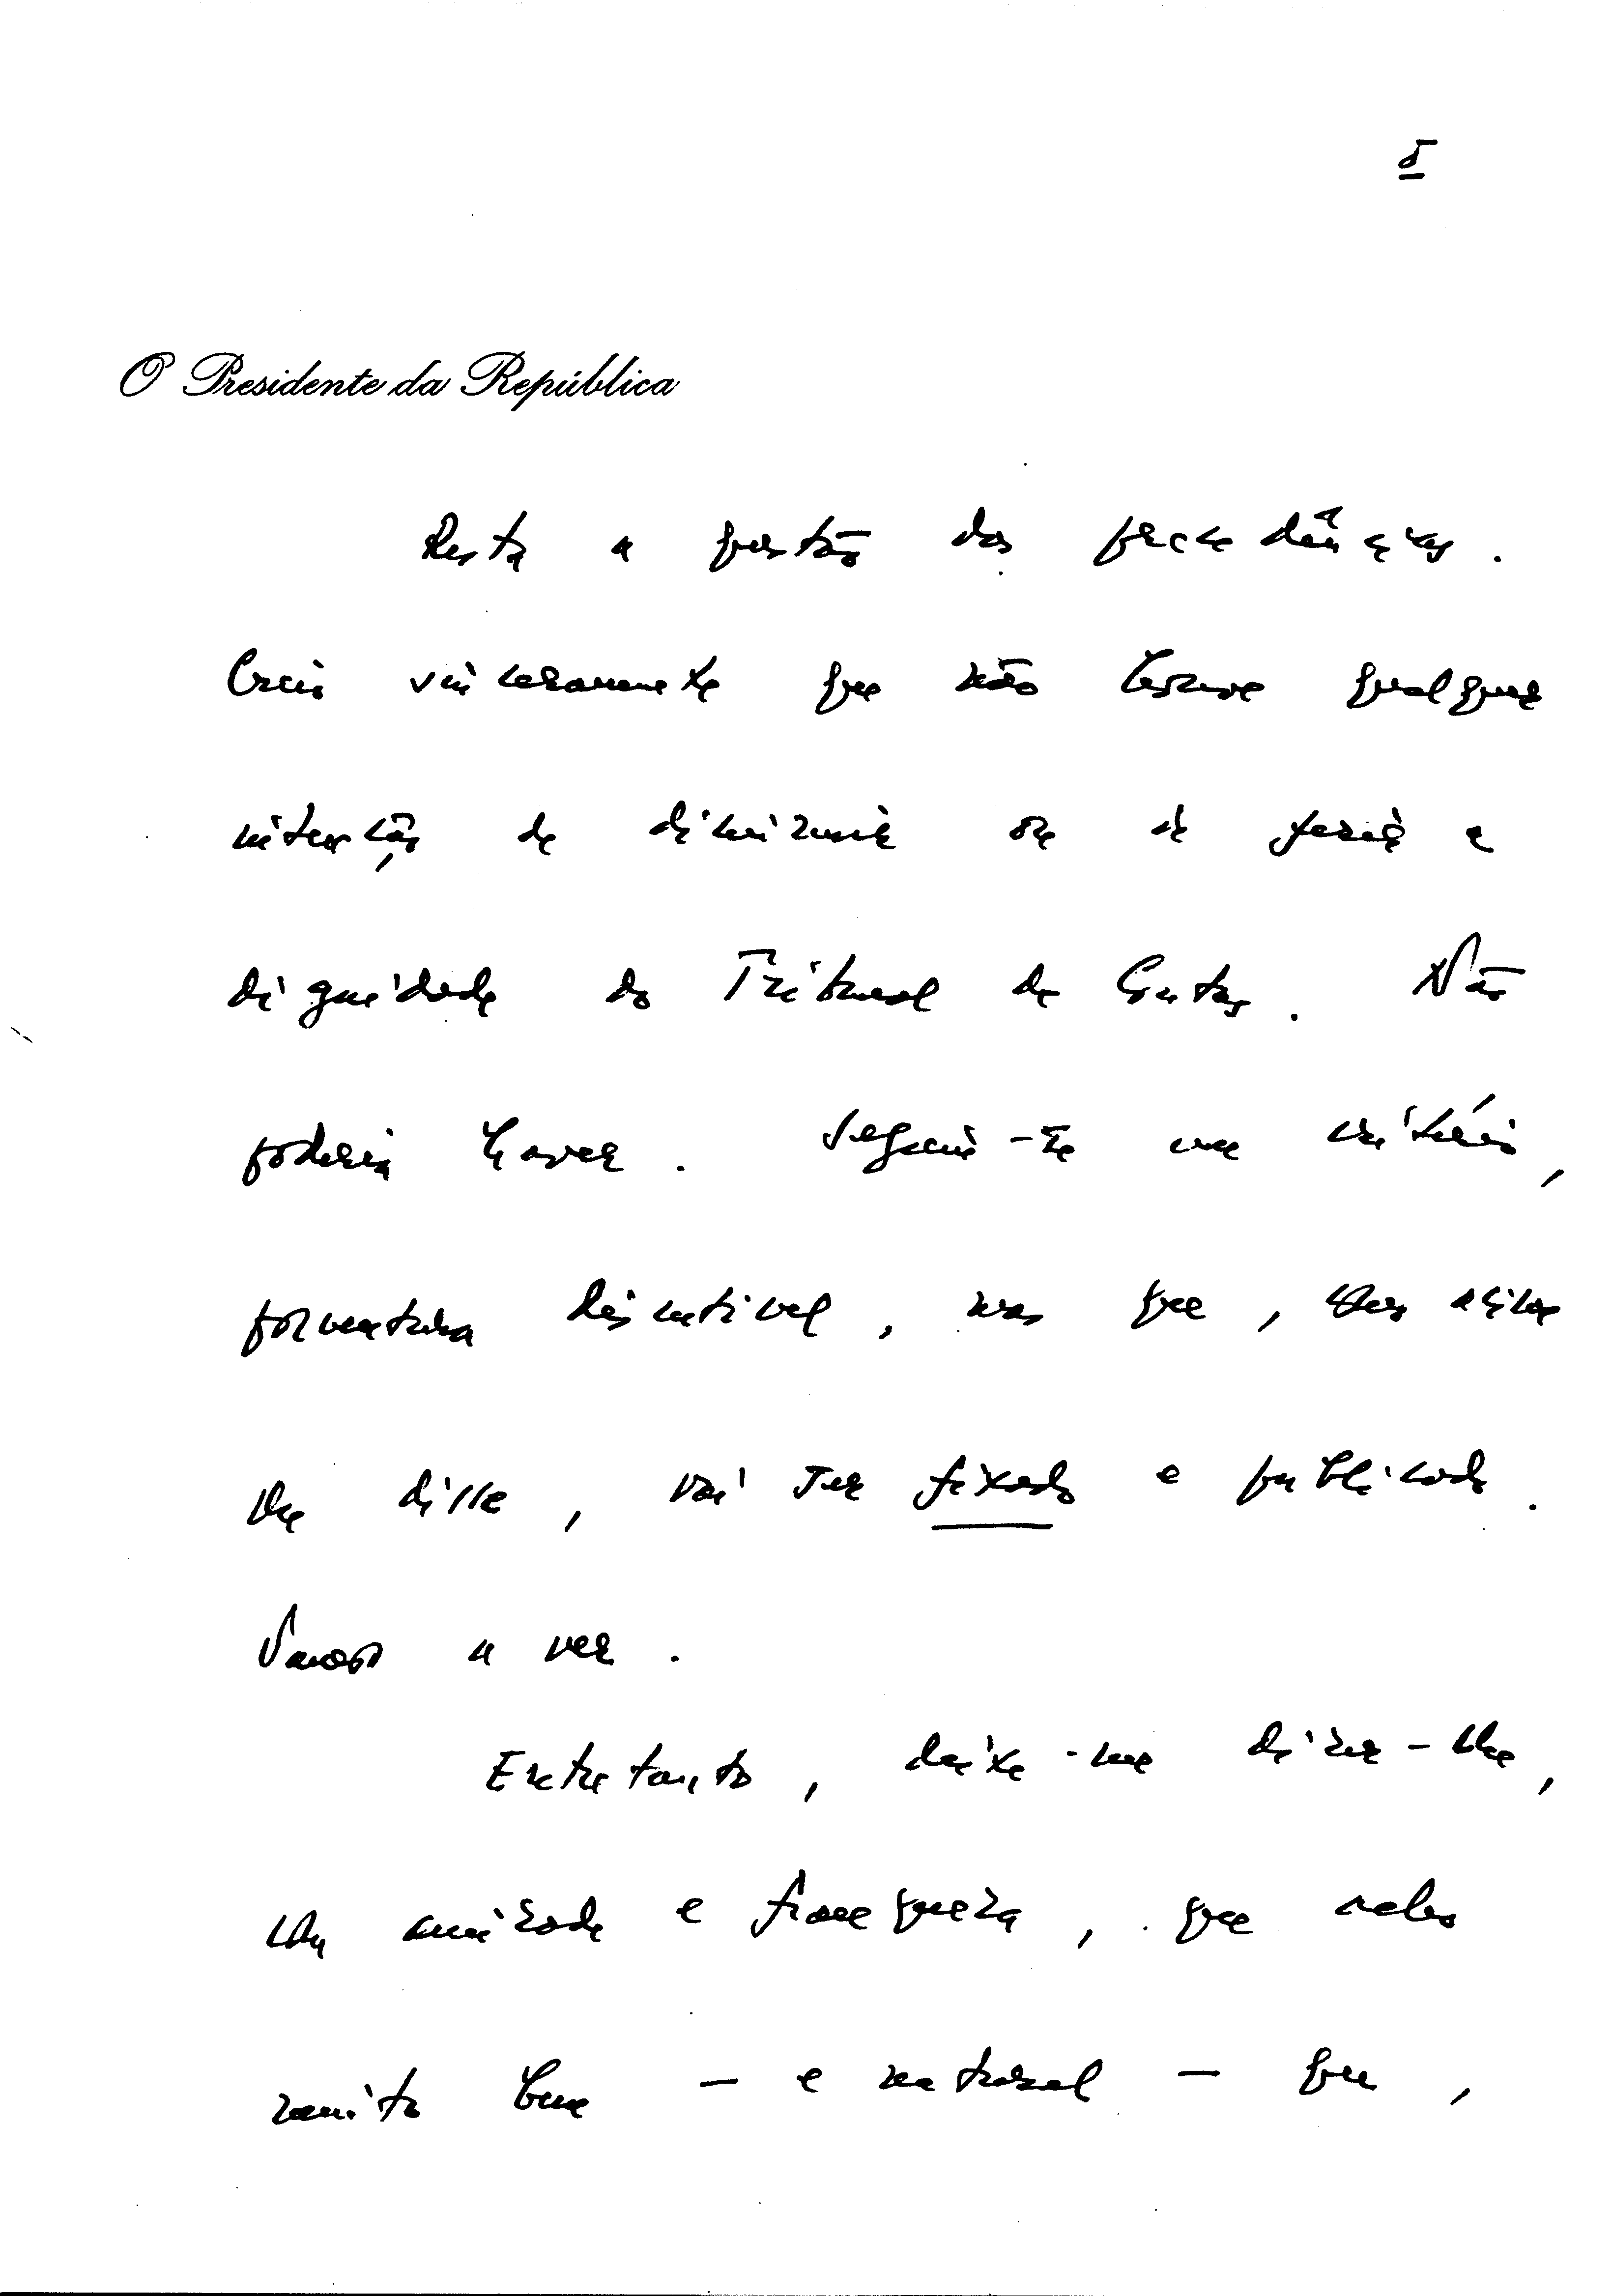 5
O Presidente da República
Resta a questão das precedências.
Creia sinceramente que não houve qualquer
intenção de diminuir ou de ferir a
dignidade do Tribunal de Contas. Não
poderia haver. Seguiu-se um critério,
porventura discutível, mas que, como acima
lhe disse, vai ser fixado e publicado.
Vamos a ver.
Entretanto, deixe-me dizer-lhe,
com amizade e franqueza, que acho
muito bem - e natural - que,